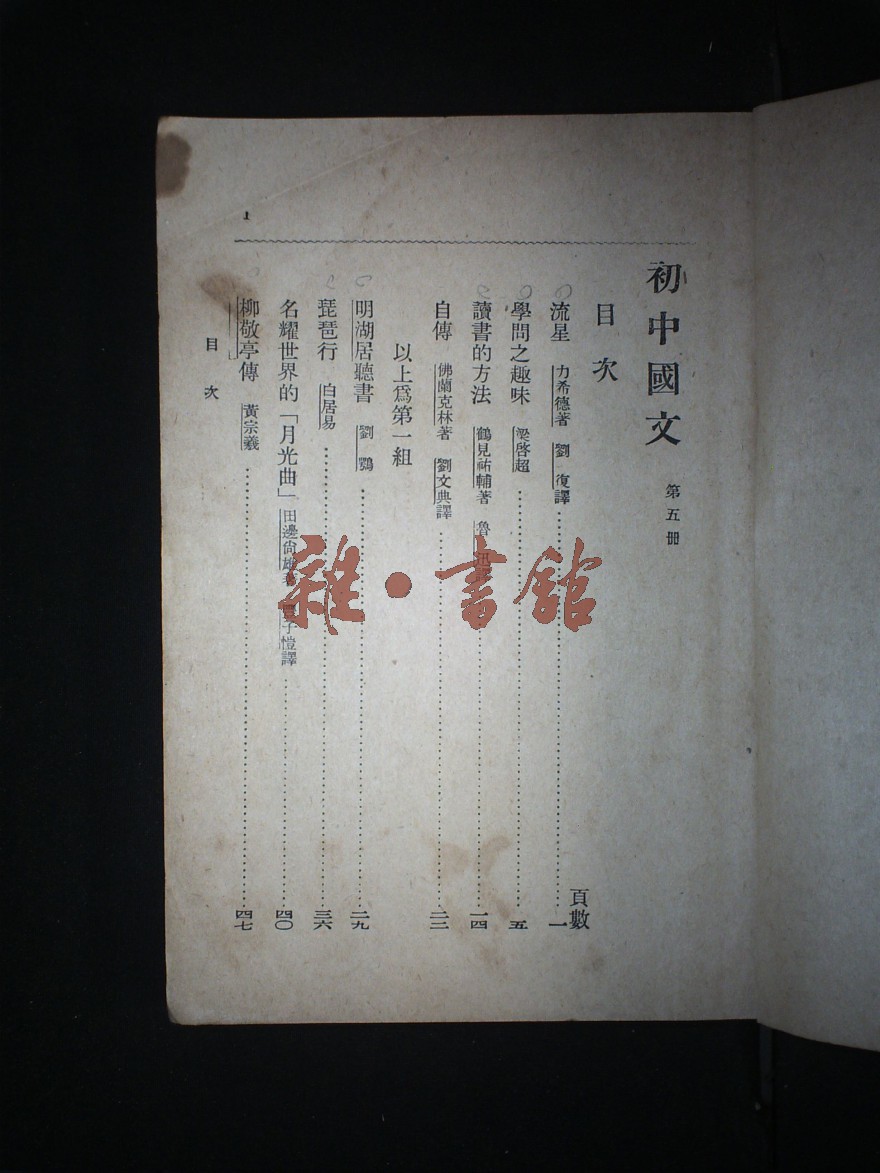 初中國文 第五冊
目次
頁數
流星 力希德著 劉復譯 一
學問之趣味 梁啓超 五
讀書的方法 鶴見祐輔著 魯迅譯 一四
自傳 佛蘭克林著 劉文典譯 二二
以上爲第一組
明湖居聽書 劉鶚 二九
琵琶行 白居易 三六
名耀世界的「月光曲」 田邊尙雄著 豐子愷譯 四〇
柳敬亭傳 黃宗羲 四七
目次
1
雜·書館